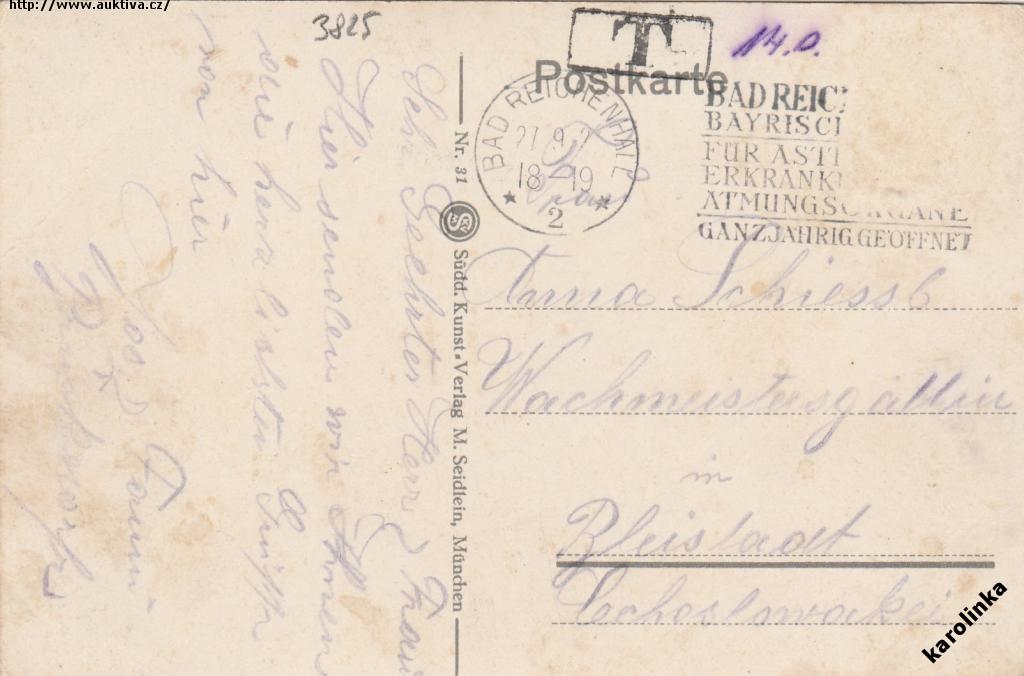 http://www.auktiva.cz/
3825
T
14.0.
Postkarte
BAD REICHENHALL
27.9.2
18-19
2
BAD REIC
BAYRISC
FÜR AST
ERKRANK
ATMUNGSORGANE
GANZJÄHRIG GEÖFFNET
Nr. 31
Südd. Kunst-Verlag M. Seidlein, München
Anna Schiessl
Wachmeistersgattin
in
Bleistadt
Sehr Geehrter Herr, Frau
Hier senden wir Ihnen
die herzlichsten Grüße
von hier
Fanni
karolinka